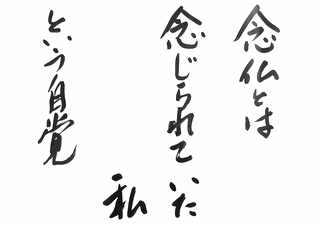 念仏とは
念じられて
いた
私
という自覚